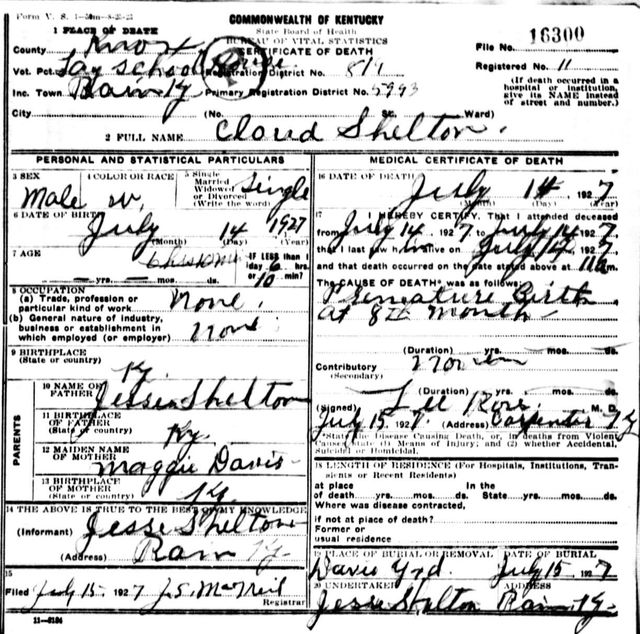 Form V. S.
COMMONWEALTH OF KENTUCKY
State Board of Health
BUREAU OF VITAL STATISTICS
CERTIFICATE OF DEATH
1 PLACE OF DEATH
County Knox
File No. 16300
Vot. Pct. School Registration District No. 814
Registered No. 11
Inc. Town Primary Registration District No. 5993
(If death occurred in a hospital or institution, give its NAME instead of street and number.)
City (No. St. Ward)
2 FULL NAME Claud Shelton.
PERSONAL AND STATISTICAL PARTICULARS
3 SEX Male
4 COLOR OR RACE W.
5 Single Married Widowed or Divorced (Write the word) Single
6 DATE OF BIRTH July 14 1927
(Month) (Day) (Year)
7 AGE
yrs. mos. ds.
IF LESS than 1 day 6 hrs. or 10 min?
8 OCCUPATION
(a) Trade, profession or particular kind of work None.
(b) General nature of industry, business or establishment in which employed (or employer) None
9 BIRTHPLACE
(State or country) Ky.
PARENTS
10 NAME OF FATHER Jesse Shelton
11 BIRTHPLACE OF FATHER
(State or country) Ky.
12 MAIDEN NAME OF MOTHER Maggie Davis
13 BIRTHPLACE OF MOTHER
(State or country) Ky.
14 THE ABOVE IS TRUE TO THE BEST OF MY KNOWLEDGE
(Informant) Jesse Shelton
(Address) Ky.
15
Filed July 15, 1927 J.S. McNeil
Registrar
11-6184
MEDICAL CERTIFICATE OF DEATH
16 DATE OF DEATH July 14, 1927
(Month) (Day) (Year)
17 I HEREBY CERTIFY, That I attended deceased
from July 14 1927 to July 14 1927
that I last saw him alive on July 14, 1927
and that death occurred on the date stated above at 11 m
The CAUSE OF DEATH* was as follows:
Premature Birth
at 8th Month
(Duration) yrs. mos. ds.
Contributory
(Secondary)
(Duration) yrs. mos. ds.
(Signed) Lee Rose, M. D.
July 15, 1927 (Address) Carpenter Ky
*State the Disease Causing Death, or, in deaths from Violent Causes state (1) Means of Injury; and (2) whether Accidental, Suicidal or Homicidal.
18 LENGTH OF RESIDENCE (For Hospitals, Institutions, Transients or Recent Residents)
at place of death yrs. mos. ds. In the State yrs. mos. ds.
Where was disease contracted,
if not at place of death?
Former or usual residence
19 PLACE OF BURIAL OR REMOVAL DATE OF BURIAL
Davis Yrd. July 15, 1927
20 UNDERTAKER ADDRESS
Jesse Shelton Ky.